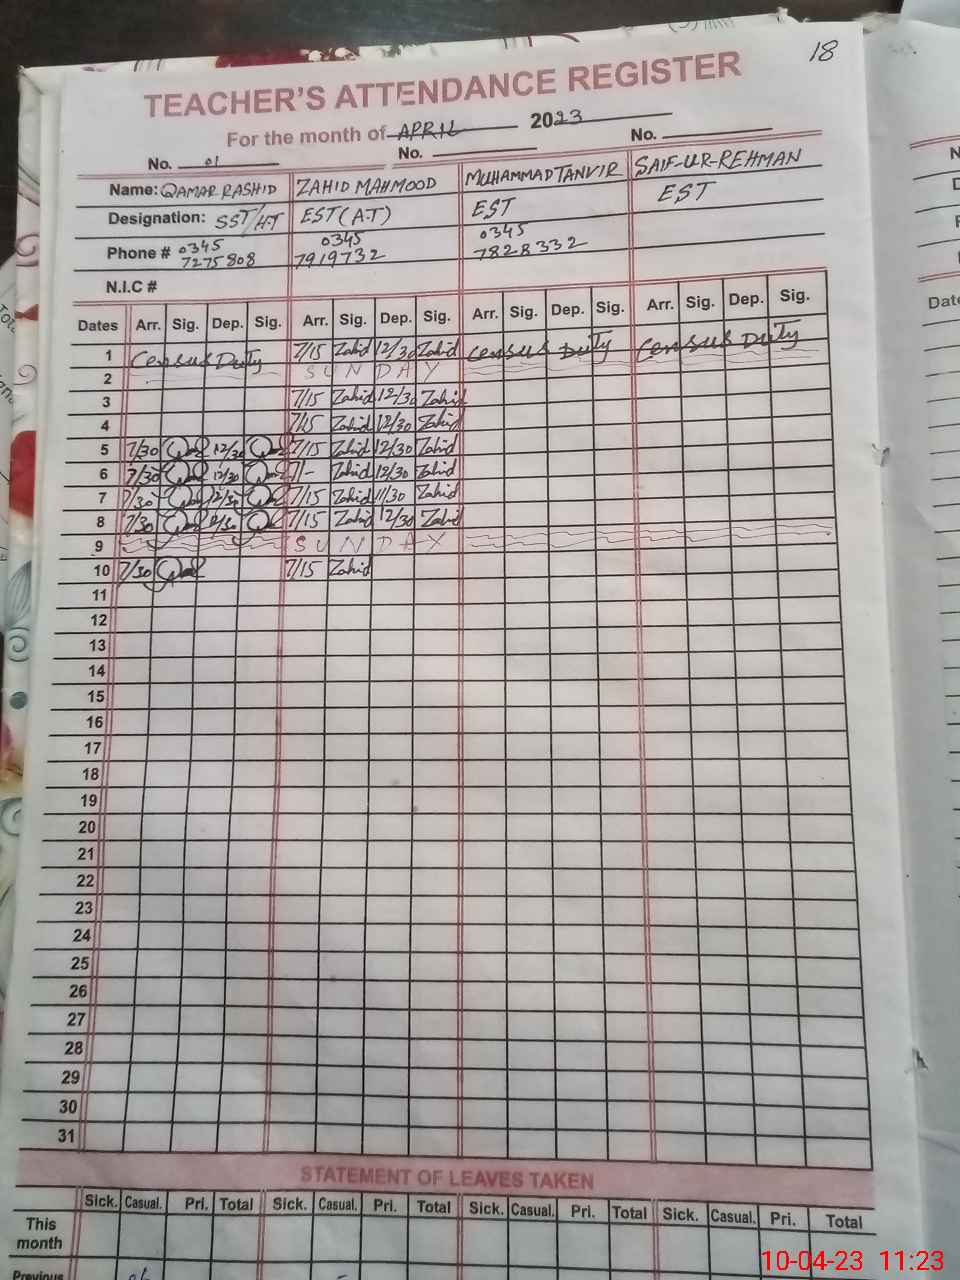 18
TEACHER'S ATTENDANCE REGISTER
For the month of APRIL 2023
No. 01 No. No.
Name: QAMAR RASHID ZAHID MAHMOOD MUHAMMAD TANVIR SAIF-UR-REHMAN
Designation: SST/HT EST (A.T) EST EST
Phone # 0345 7275808 0345 7919732 0345 7828332
N.I.C #
Dates Arr. Sig. Dep. Sig. Arr. Sig. Dep. Sig. Arr. Sig. Dep. Sig. Arr. Sig. Dep. Sig.
1 Census Duty 7/15 Zahid 12/30 Zahid Census Duty Census Duty
2 SUNDAY
3 7/15 Zahid 12/30 Zahid
4 7/15 Zahid 12/30 Zahid
5 7/30 12/30 7/15 Zahid 12/30 Zahid
6 7/30 12/30 7/- Zahid 12/30 Zahid
7 7/30 12/30 7/15 Zahid 11/30 Zahid
8 7/30 12/30 7/15 Zahid 12/30 Zahid
9 SUNDAY
10 7/30 7/15 Zahid
11
12
13
14
15
16
17
18
19
20
21
22
23
24
25
26
27
28
29
30
31
STATEMENT OF LEAVES TAKEN
Sick. Casual. Pri. Total Sick. Casual. Pri. Total Sick. Casual. Pri. Total Sick. Casual. Pri. Total
This month
Previous
10-04-23 11:23